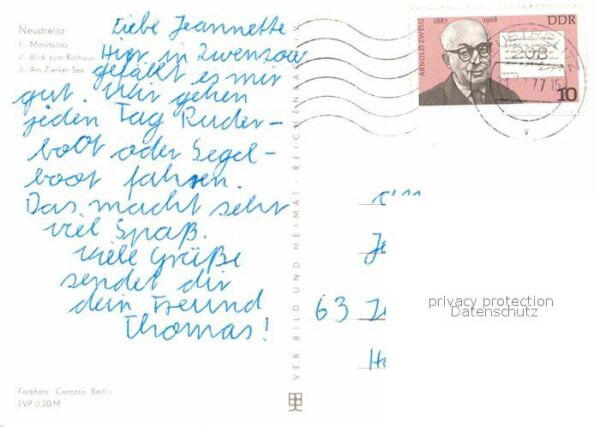 Neustrelitz
1. Marktplatz
2. Blick zum Rathaus
3. Am Zierker See
Liebe Jeannette
Hier in Zwenzow
gefällt es mir
gut. Wir gehen
jeden Tag Ruder-
boot oder Segel-
boot fahren.
Das macht sehr
viel Spaß.
Viele Grüße
sendet dir
dein Freund
Thomas!
Farbfoto Corazza Berlin
EVP 0,20 M
VEB BILD UND HEIMAT · REICHENBACH I. V.
ARNOLD ZWEIG
1887 1968
DDR
10
208
77 15
v
63
privacy protection
Datenschutz